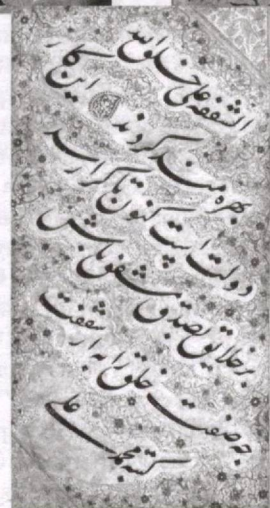 الشفقة علی خلق الله
بهره مند کردند این کار
دولت است کنون تا کرا رسد
بر خلایق بصدق مشفق باش
چه صفت خلق را به از شفقت
کتبه محمد علی